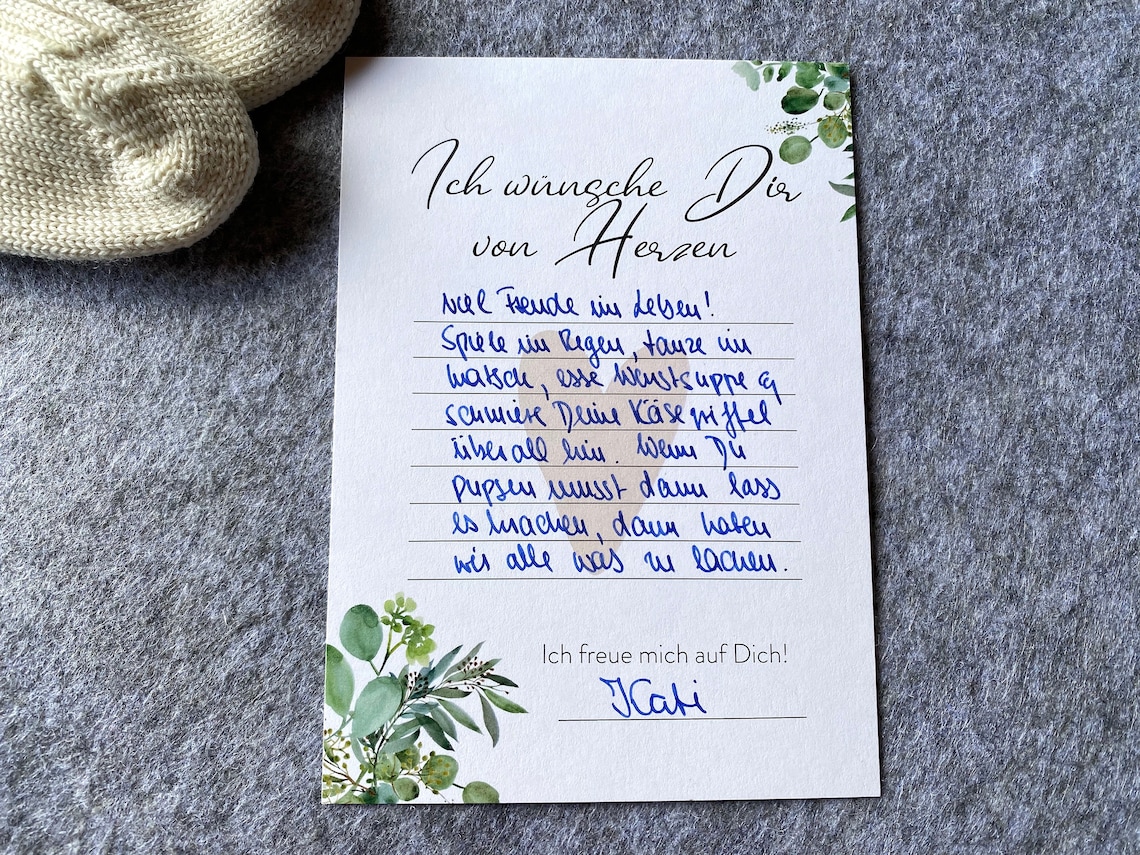 Ich wünsche Dir
von Herzen
viel Freude im Leben!
Spiele im Regen, tanze im
Matsch, esse Wurstsuppe &
schmiere Deine Käsegriffel
überall hin. Wenn Du
pupsen musst dann lass
es krachen, dann haben
wir alle was zu lachen.
Ich freue mich auf Dich!
Kati